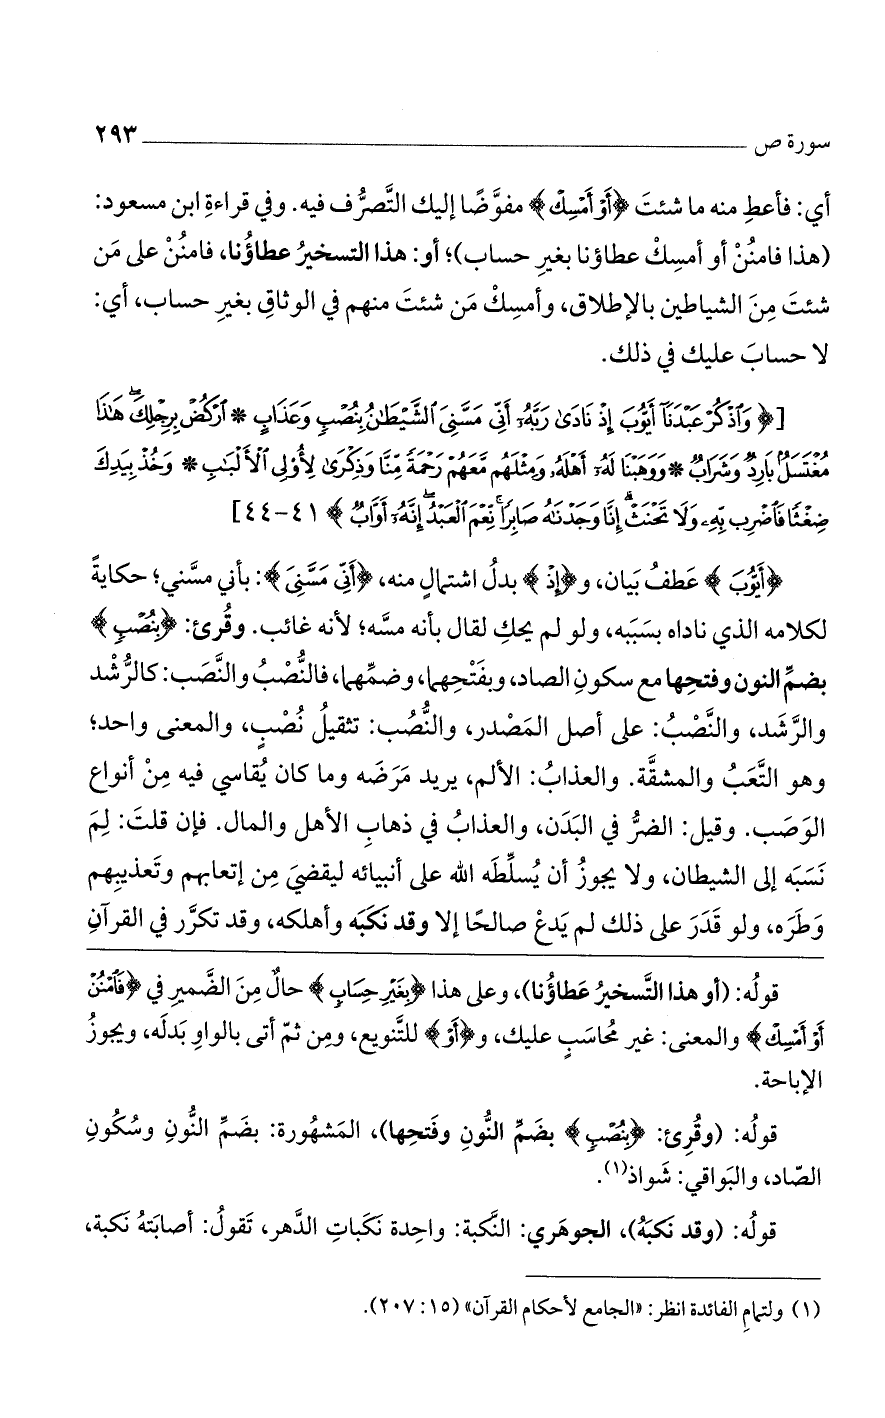 سورة ص ٢٩٣
أي: فأعطِ منه ما شئتَ ﴿أَوْ أَمْسِكْ﴾ مفوَّضًا إليك التَّصرُّف فيه. وفي قراءةِ ابن مسعود:
(هذا فامنُنْ أو أمسِكْ عطاؤنا بغيرِ حساب)؛ أو: هذا التسخيرُ عطاؤُنا، فامنُنْ على مَن
شئتَ مِنَ الشياطين بالإطلاق، وأمسِكْ مَن شئتَ منهم في الوثاقِ بغيرِ حساب، أي:
لا حسابَ عليك في ذلك.
[﴿وَٱذْكُرْ عَبْدَنَآ أَيُّوبَ إِذْ نَادَىٰ رَبَّهُۥٓ أَنِّى مَسَّنِىَ ٱلشَّيْطَٰنُ بِنُصْبٍ وَعَذَابٍ * ٱرْكُضْ بِرِجْلِكَ ۖ هَٰذَا
مُغْتَسَلٌۢ بَارِدٌ وَشَرَابٌ * وَوَهَبْنَا لَهُۥٓ أَهْلَهُۥ وَمِثْلَهُم مَّعَهُمْ رَحْمَةً مِّنَّا وَذِكْرَىٰ لِأُو۟لِى ٱلْأَلْبَٰبِ * وَخُذْ بِيَدِكَ
ضِغْثًا فَٱضْرِب بِّهِۦ وَلَا تَحْنَثْ ۗ إِنَّا وَجَدْنَٰهُ صَابِرًا ۚ نِّعْمَ ٱلْعَبْدُ ۖ إِنَّهُۥٓ أَوَّابٌ﴾ ٤١-٤٤]
﴿أَيُّوبَ﴾ عَطفُ بَيان، و﴿إِذْ﴾ بدلُ اشتمالٍ منه، ﴿أَنِّى مَسَّنِىَ﴾: بأني مسَّني؛ حكايةً
لكلامه الذي ناداه بسَبَبه، ولو لم يحكِ لقال بأنه مسَّه؛ لأنه غائب. وقُرئ: ﴿بِنُصْبٍ﴾
بضمِّ النون وفتحِها مع سكونِ الصاد، وبفَتْحِهما، وضمِّهما، فالنُّصْبُ والنَّصَب: كالرُّشْد
والرَّشَد، والنَّصْبُ: على أصل المَصْدر، والنُّصُب: تثقيلُ نُصْبٍ، والمعنى واحد؛
وهو التَّعَبُ والمشقَّة. والعذابُ: الألم، يريد مَرَضَه وما كان يُقاسي فيه مِنْ أنواع
الوَصَب. وقيل: الضرُّ في البَدَن، والعذابُ في ذهابِ الأهل والمال. فإن قلتَ: لِمَ
نَسَبَه إلى الشيطان، ولا يجوزُ أن يُسلِّطَه الله على أنبيائه ليقضيَ مِن إتعابهم وتَعذيبِهم
وَطَرَه، ولو قَدَرَ على ذلك لم يَدعْ صالحًا إلا وقد نَكَبَه وأهلكه، وقد تكرَّر في القرآنِ
قولُه: (أو هذا التَّسخيرُ عَطاؤُنا)، وعلى هذا ﴿بِغَيْرِ حِسَابٍ﴾ حالٌ مِنَ الضَّميرِ في ﴿فَٱمْنُنْ
أَوْ أَمْسِكْ﴾ والمعنى: غير مُحاسَبٍ عليك، و﴿أَوْ﴾ للتَّنويع، ومِن ثمّ أتى بالواوِ بَدلَه، ويجوزُ
الإباحة.
قولُه: (وقُرِئ: ﴿بِنُصْبٍ﴾ بضَمِّ النُّونِ وفَتحِها)، المَشهُورة: بضَمِّ النُّونِ وسُكُونِ
الصّاد، والبَواقي: شَواذ(١).
قولُه: (وقد نَكبَهُ)، الجوهَري: النَّكبة: واحِدة نَكَباتِ الدَّهر، تَقولُ: أصابَتهُ نَكبة،
(١) ولتمامِ الفائدة انظر: «الجامع لأحكام القرآن» (١٥: ٢٠٧).